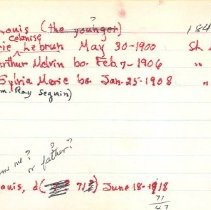 ?
ouis (the younger) 184
Celanise
rie Lebrun May 30-1900 Sh
rthur Melvin bo. Feb. 7-1906 "
Sylvia Marie bo Jan. 25-1908 "
m. Ray Seguin)
me?
or father?
ouis, d( 71?) June 18-1918
71
47